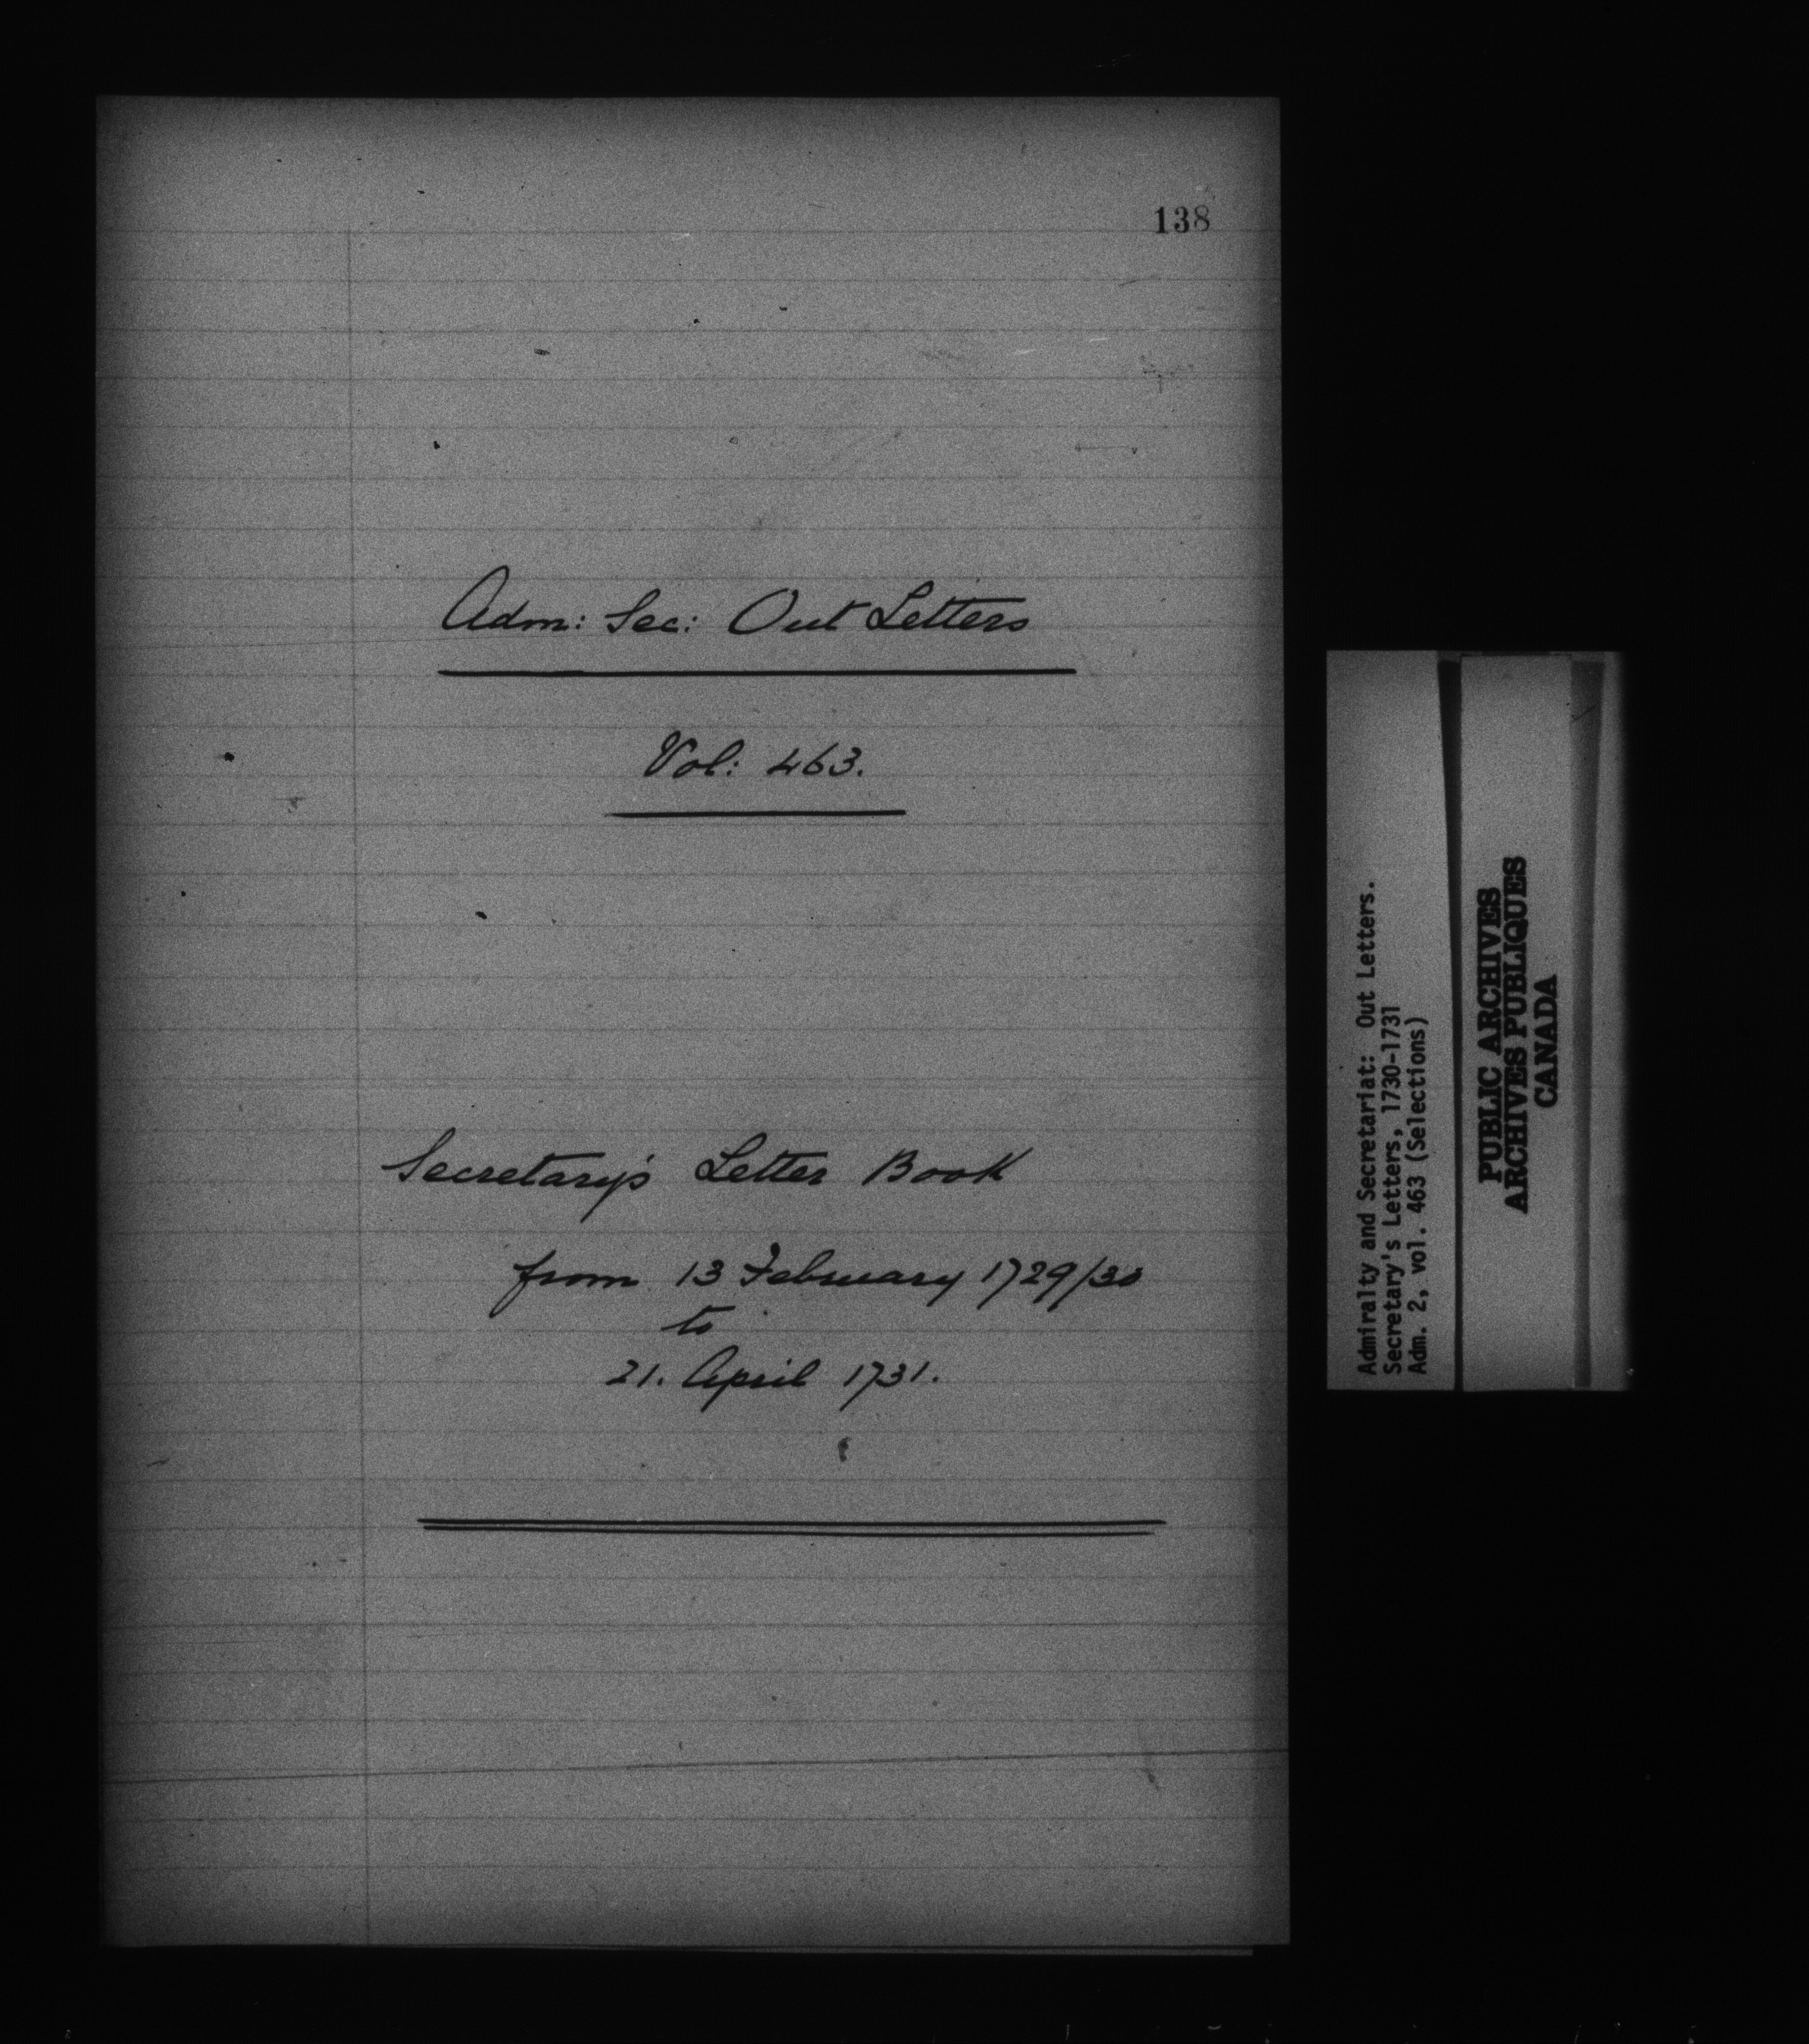 138
Adm: Sec: Out Letters
Vol: 463.
Secretary's Letter Book
from 13 February 1729/30
to
21. April 1731.
Admiralty and Secretariat: Out Letters.
Secretary's Letters, 1730-1731
Adm. 2, vol. 463 (Selections)
PUBLIC ARCHIVES
ARCHIVES PUBLIQUES
CANADA